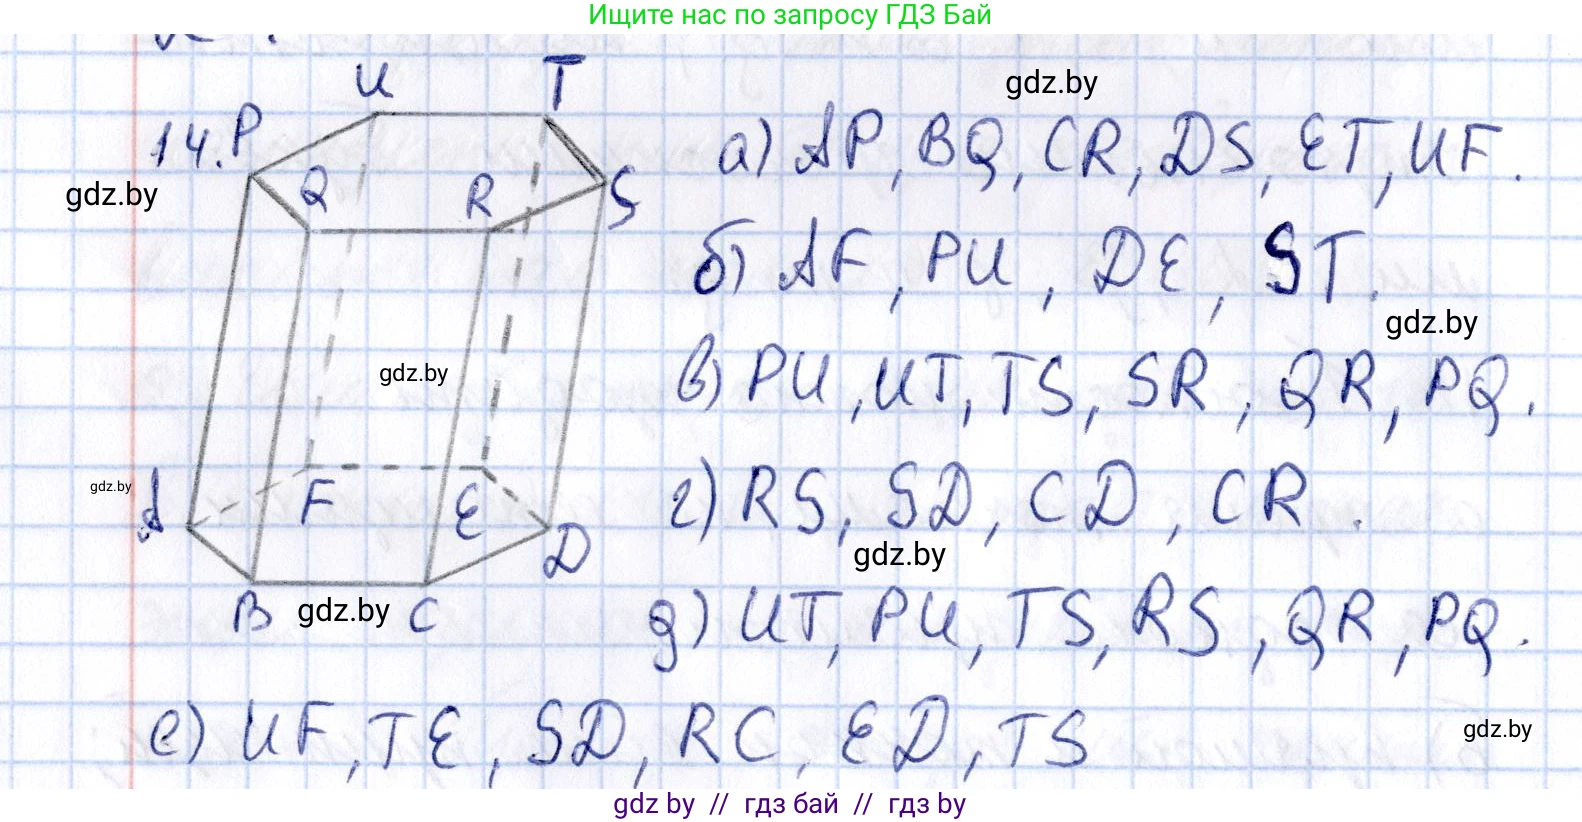 Ищите нас по запросу ГДЗ Бай
U T
gdz.by
14. P
Q R S
gdz.by
а) AP, BQ, CR, DS, ET, UF.
б) AF, PU, DE, ST.
gdz.by
gdz.by
в) PU, UT, TS, SR, QR, PQ.
gdz.by
A F E D
г) RS, SD, CD, CR.
gdz.by
B C
gdz.by
д) UT, PU, TS, RS, QR, PQ.
е) UF, TE, SD, RC, ED, TS
gdz.by
gdz by // гдз бай // гдз by